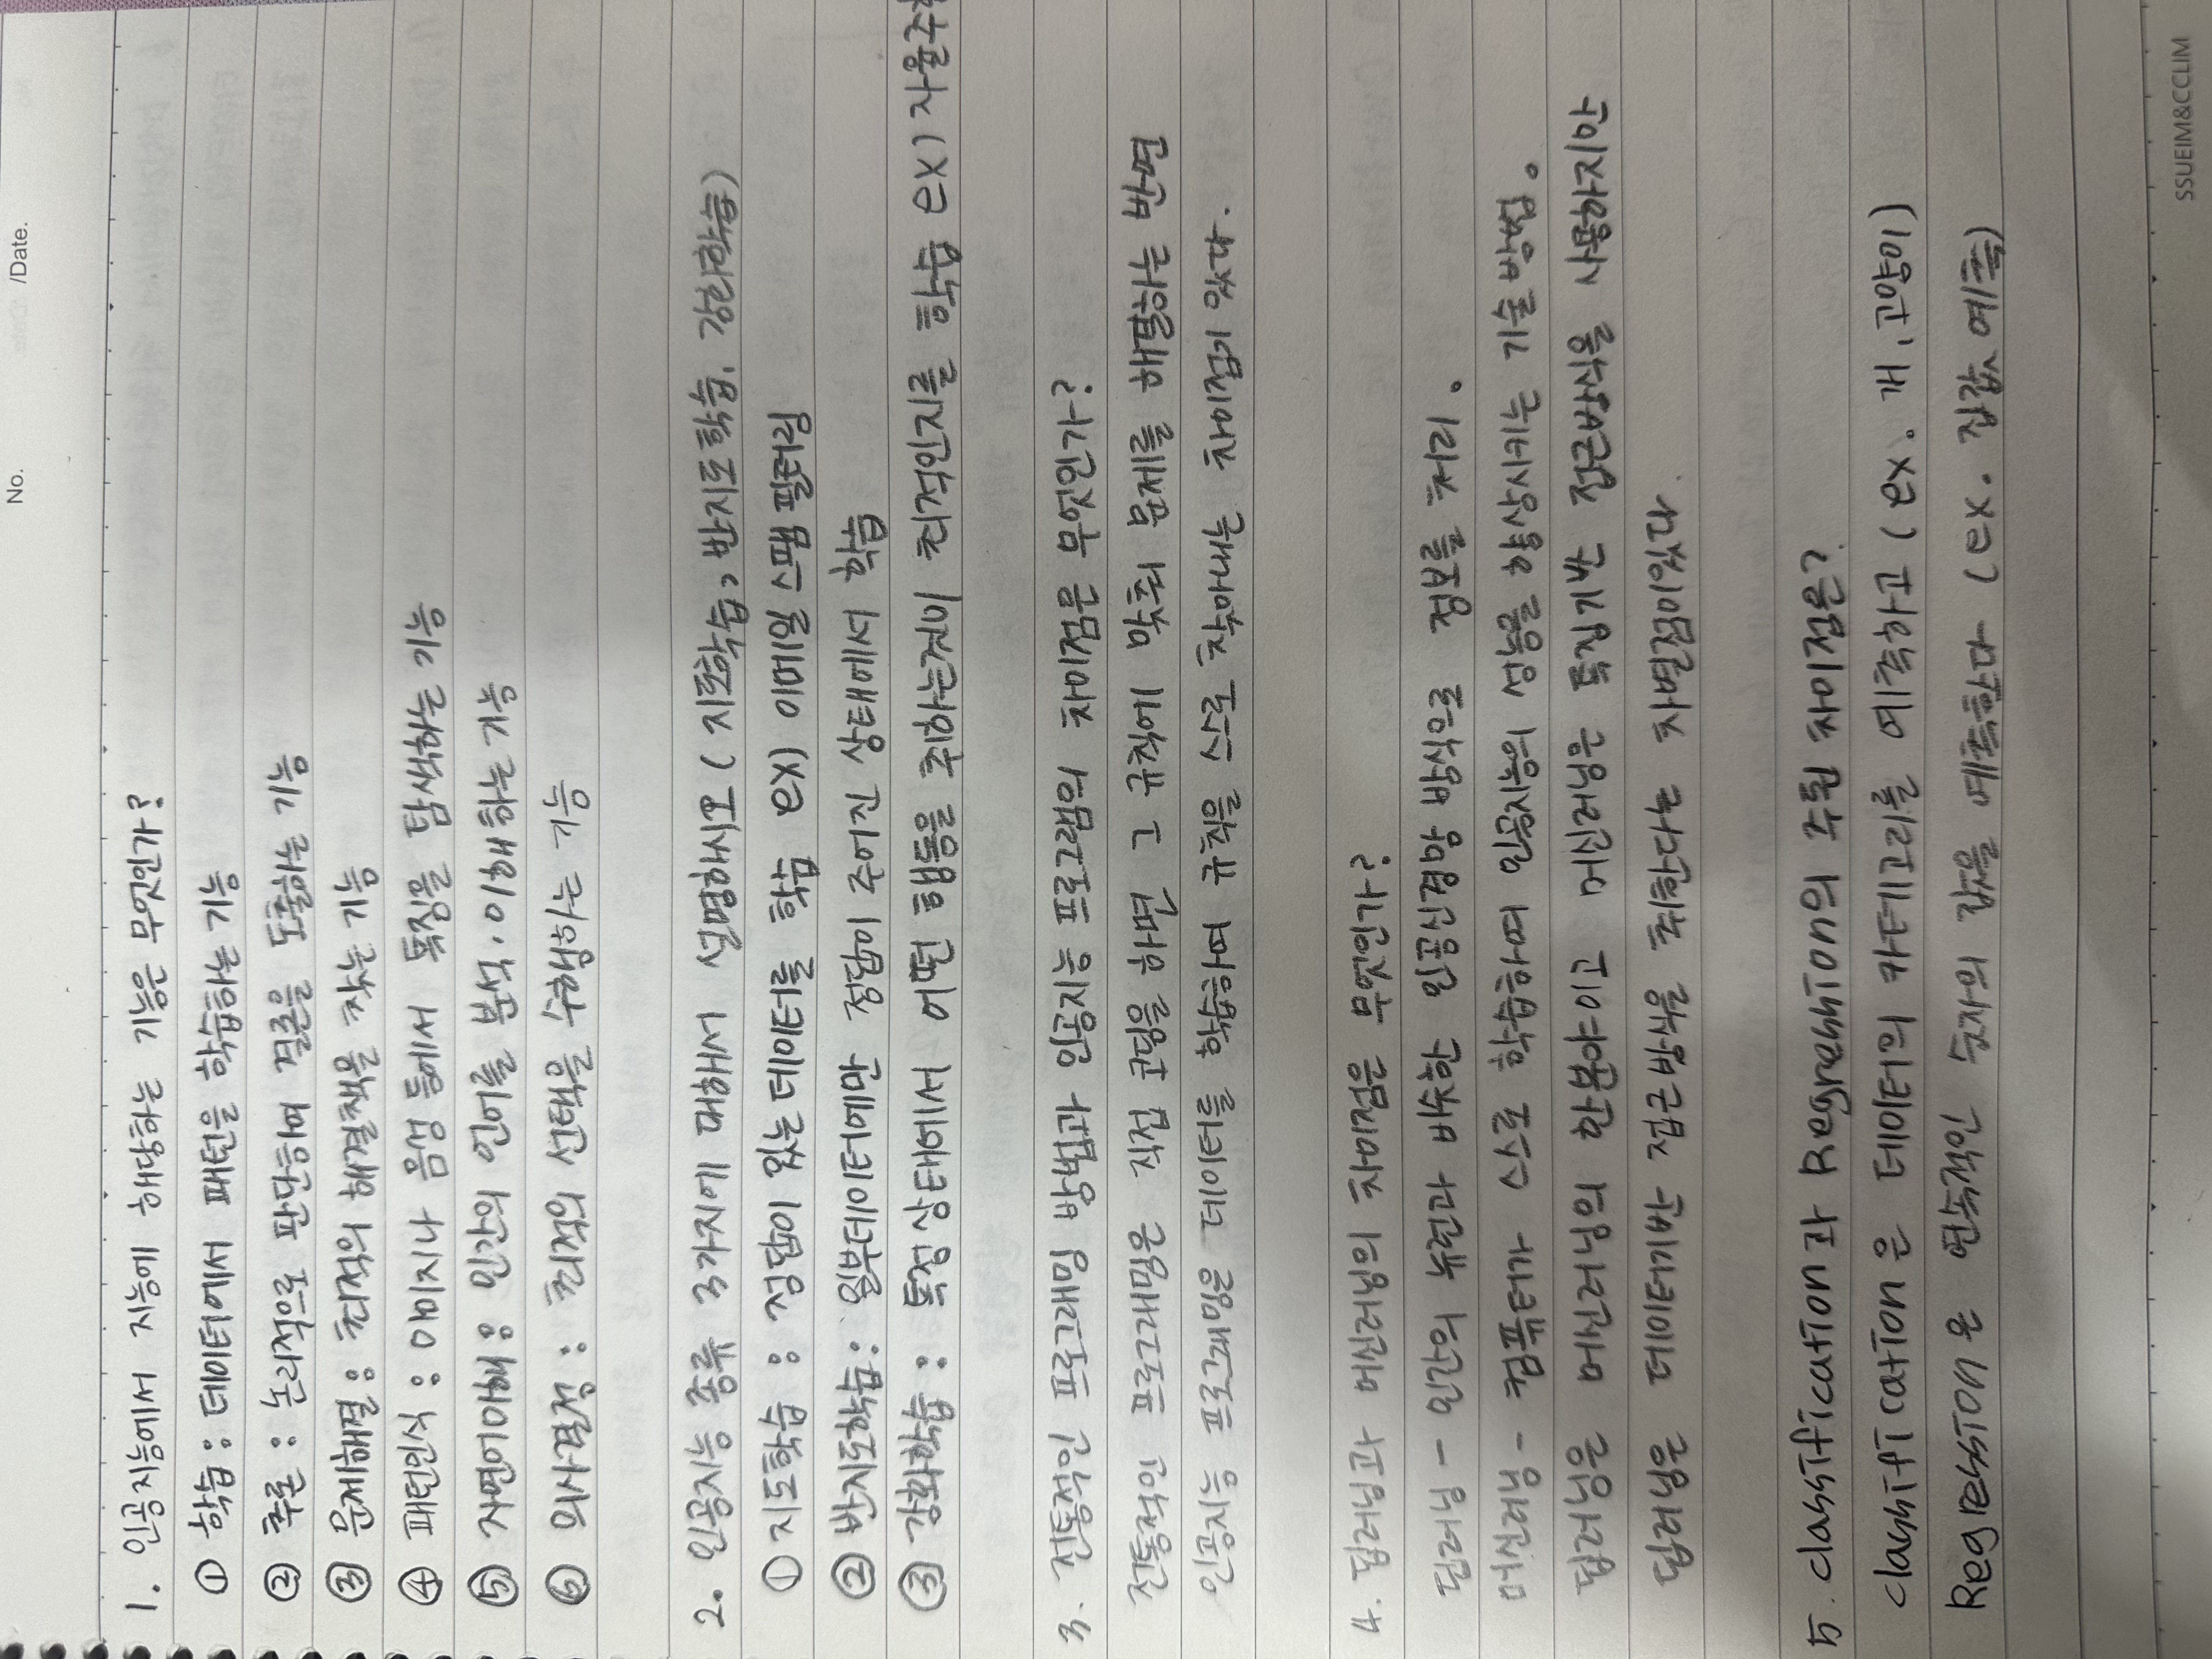 No. /Date.
1. 인공지능에서 지능에 해당하는 기능은 무엇인가?
① 학습 : 데이터에서 패턴을 학습하는 기능
② 추론 : 논리적으로 판단하여 결론을 도출하는 기능
③ 문제해결 : 최적의 해결책을 찾는 기능
④ 패턴인식 : 이미지나 음성 등에서 특징을 탐색하는 기능
⑤ 자연어이해 : 인간의 언어를 분석·이해하는 기능
⑥ 의사결정 : 최적의 선택을 수행하는 기능
2. 인공지능 종류 3가지에 대해서 설명하시오 ( 지도학습, 반지도학습, 강화학습)
① 지도학습 : 정답이 있는 데이터를 학습 ex) 이메일 스팸 필터링
② 반지도학습 : 일부데이터에만 정답이 주어진 상태에서 학습
③ 강화학습 : 특정 상태에서 어떤 행동을 취하는것이 최적인지를 학습 ex) 자율주
3. 전통적인 프로그래밍 방법과 인공지능 프로그램의 차이점은 무엇인가?
전통적인 프로그래밍은 직접 코딩을 하면 그 규칙에 맞춰 문제를 해결하는 반면
인공지능 프로그래밍은 데이터를 학습하여 규칙을 스스로 찾아내는 차이점이 있다.
4. 딥러닝과 머신러닝의 차이점은 무엇인가?
딥러닝 - 인간의 뉴런과 비슷한 인공신경망 방식으로 정보를 처리.
머신러닝 - 컴퓨터가 스스로 학습하여 인공지능의 성능을 향상시키는 기술 방법.
딥러닝은 머신러닝의 한분야이고 머신러닝은 특징기반 접근방식을 사용하지만
딥러닝은 데이터기반 접근방식을 취한다는 차별점이있다.
5. classification과 Regression의 주된 차이점은?
classification은 데이터의 카테고리를 예측하고 (ex. 개, 고양이)
Regression은 연속적인 숫자의 값을 예측한다 (ex. 집값 예측)
SSUEIM&CCLIM